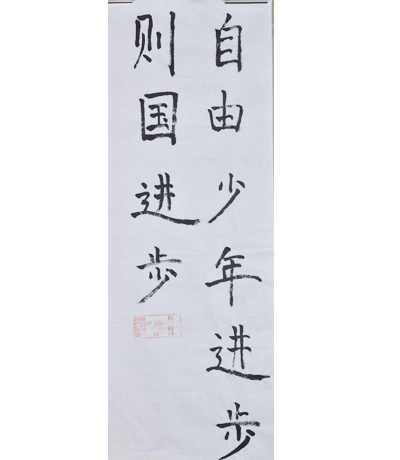 自由少年进步
则国进步